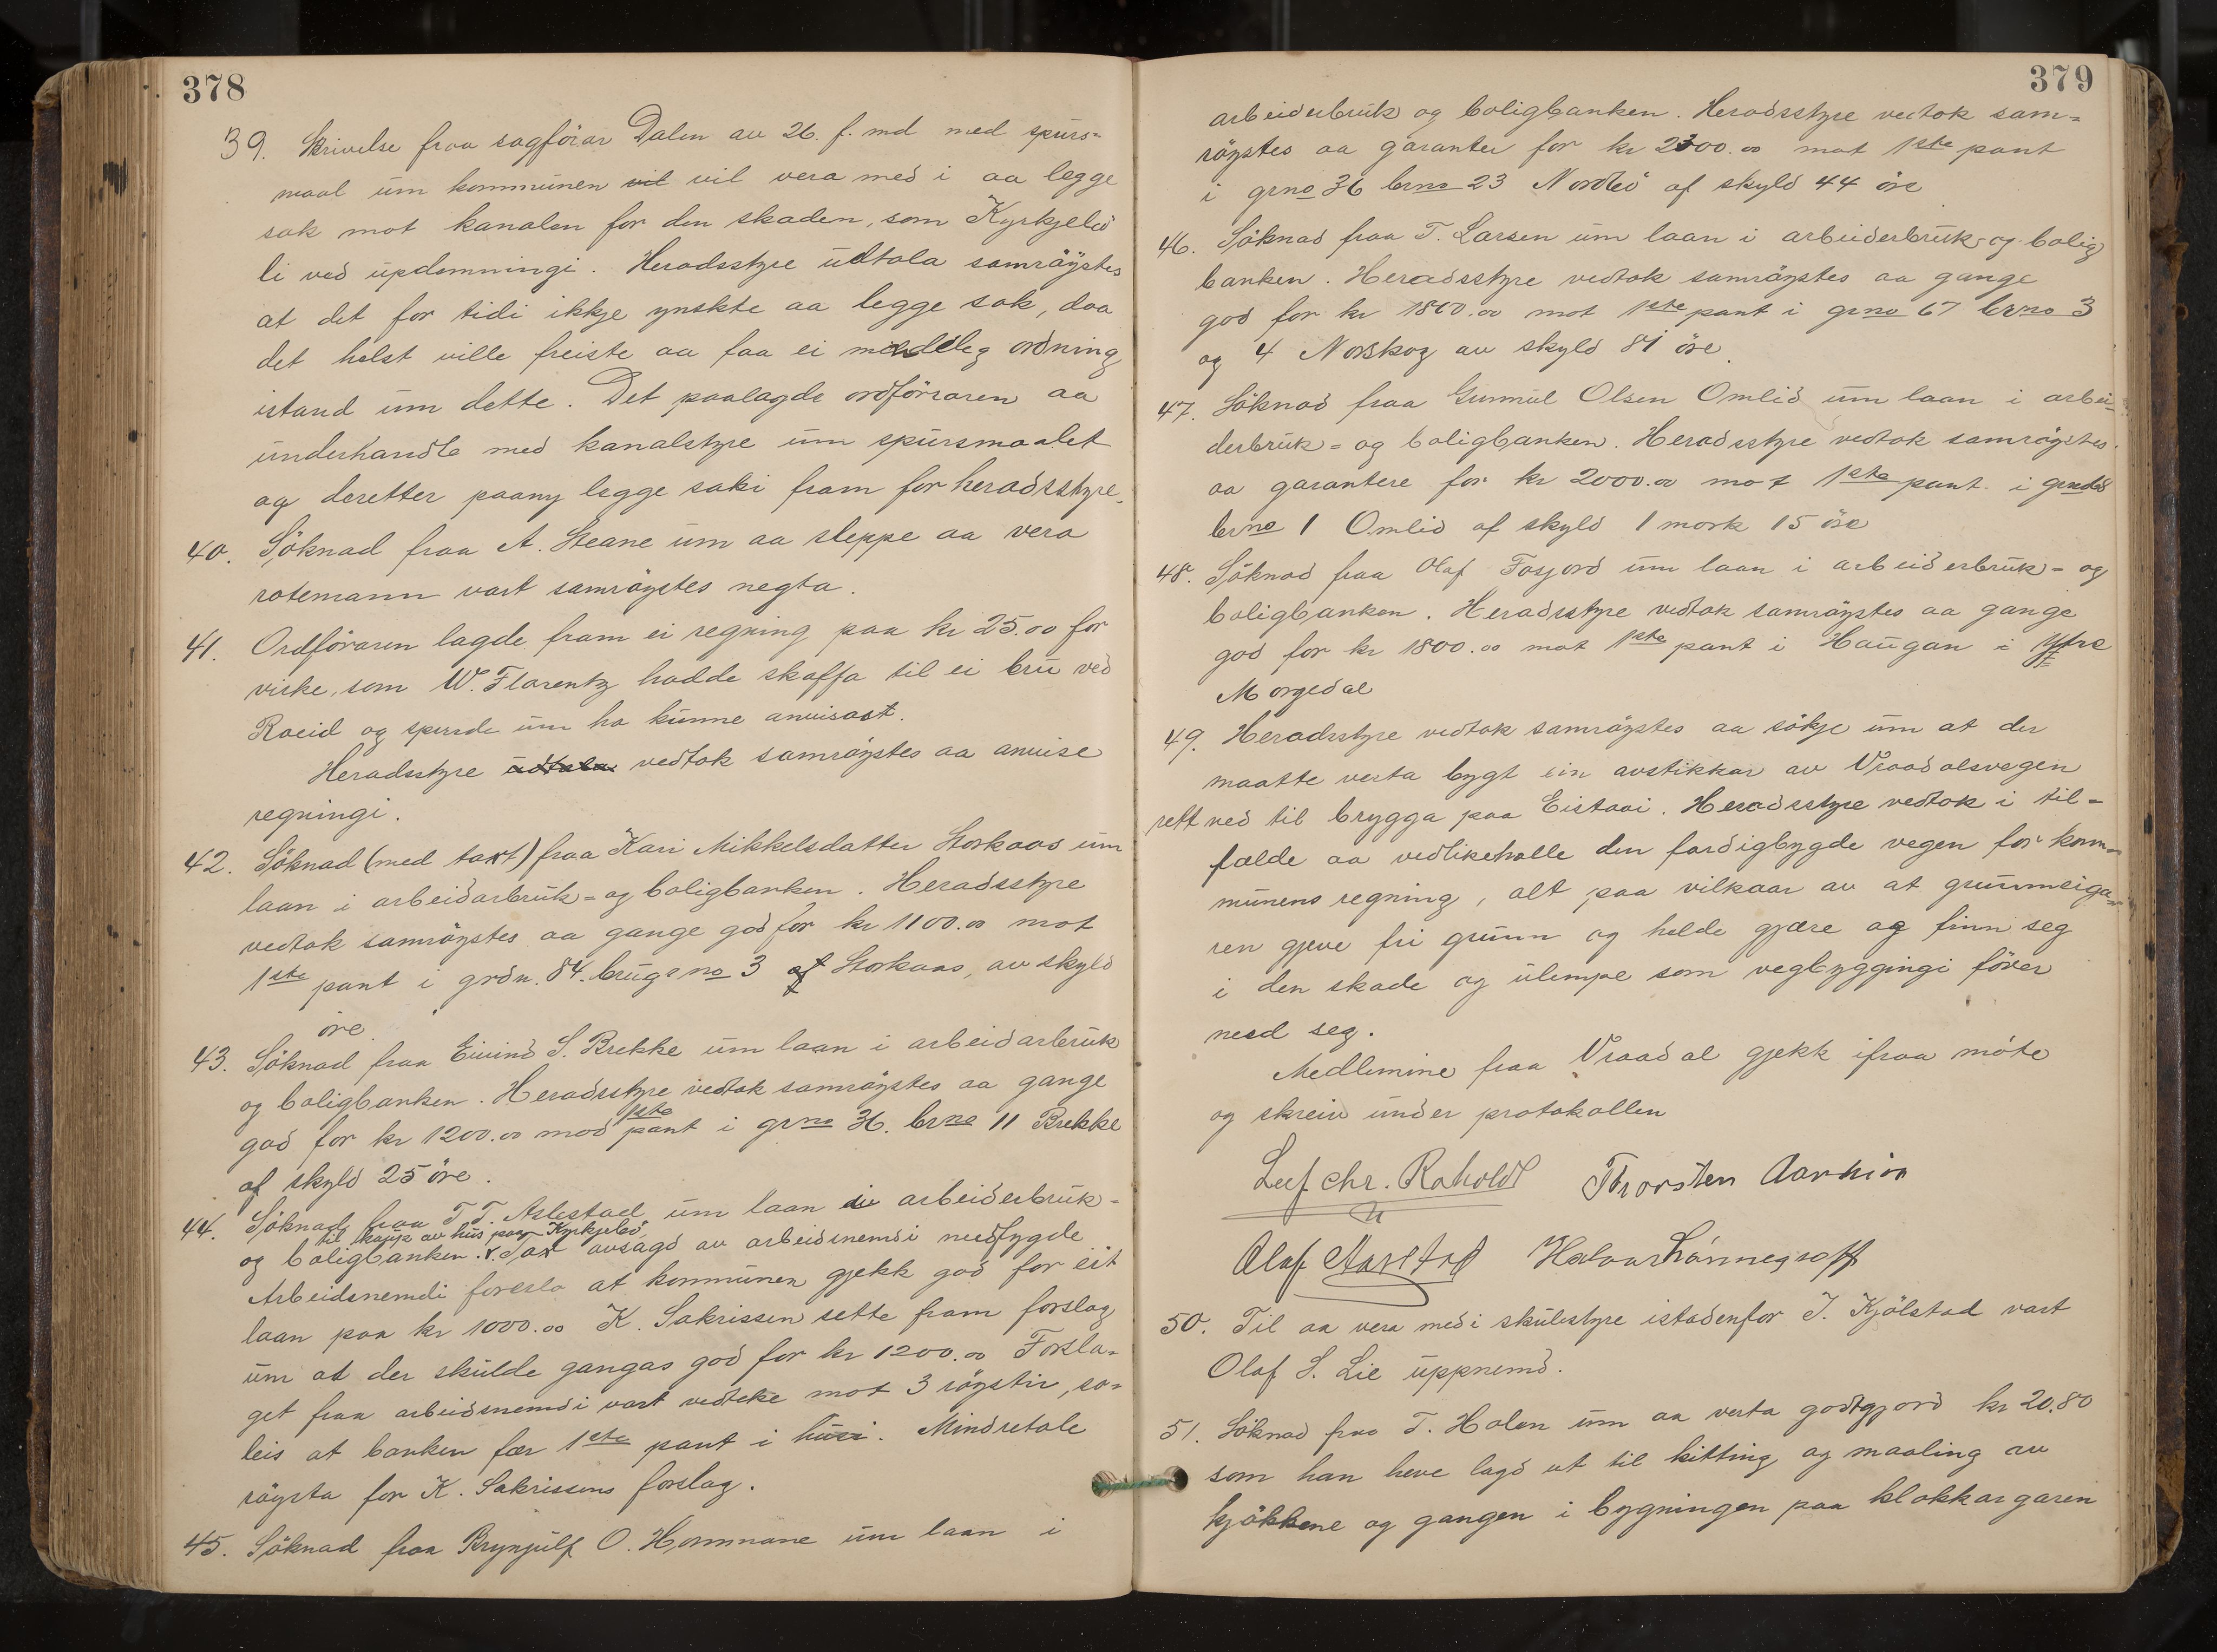 378
39. Skrivelse fraa sagförar Dalen av 26. f. md med spurs-
maal um kommunen vil vil vera med i aa legge
sak mot kanalen for den skaden, som Kyrkjebö
li ved updemningi. Heradsstyre udtala samröystes
at det for tidi ikkje ynskte aa legge sak, daa
det helst ville freiste aa faa ei mindeleg ordning
istand um dette. Det paalagde ordföraren aa
underhandle med kanalstyre um spursmaalet
og deretter paany legge saki fram for heradsstyre.
40. Söknad fraa A. Steane um aa sleppe aa vera
rotemann vart samröystes negta.
41. Ordföraren lagde fram ei regning paa kr 25.00 for
virke, som W. Florentz hadde skaffa til ei bru ved
Roeid og spurde um ho kunne anvisast.
Heradsstyre udtala vedtok samröystes aa anvise
regningi.
42. Söknad (med taxt) fraa Kari Mikkelsdatter Storkaas um
laan i arbeidarbruk- og boligbanken. Heradsstyre
vedtok samröystes aa gange god for kr 1100.00 mot
1ste pant i grdn. 84. brugsno 3 af Storkaas, av skyld
öre
43. Söknad fraa Eivind S. Brekke um laan i arbeidarbruk
og boligbanken. Heradsstyre vedtok samröystes aa gange
god for kr 1200.00 mod 1ste pant i grno 36. brno 11 Brekke
af skyld 25 öre.
44. Söknad fraa T. T. Aslestad um laan i arbeiderbruk-
til kaup av hus paa Kyrkjebö
og boligbanken. Tax avsagd av arbeidsnemdi medfygde
Arbeidsnemdi foreslo at kommunen gjekk god for eit
laan paa kr 1000.00 K. Sakrissen sette fram forslag
um at der skulde gangas god for kr 1200.00 Forsla-
get fraa arbeidsnemdi vart vedteke mot 3 röystir, so-
leis at banken fær 1ste pant i husi. Mindretale
röysta for K. Sakrissens forslag.
45. Söknad fraa Brynjulf O. Hommane um laan i
379
arbeiderbruk og boligbanken. Heradsstyre vedtok sam-
röystes aa garantere for kr 2300.00 mot 1ste pant
i grno 36 brno 23 Nordbö af skyld 44 öre
46. Söknad fraa T. Larsen um laan i arbeiderbruk- og bolig
banken. Heradsstyre vedtok samröystes aa gange
god for kr 1860.00 mot 1ste pant i grno 67 brno 3
og 4 Norskog av skyld 81 öre.
47. Söknad fraa Gunnul Olsen Omlid um laan i arbei-
derbruk- og boligbanken. Heradsstyre vedtok samröystes
aa garantere for kr 2000.00 mot 1ste pant i
brno 1 Omlid af skyld 1 mork 15 öre
48. Söknad fraa Olaf Fosjord um laan i arbeiderbruk- og
boligbanken. Heradsstyre vedtok samröystes aa gange
god for kr 1800.00 mot 1ste pant i Haugan i Yfre
Morgedal
49. Heradsstyre vedtok samröystes aa sökje um at der
maatte verta bygt ein avstikkar av Vraadalsvegen
rett ned til brygga paa Eistaai. Heradsstyre vedtok i til-
fælde aa vedlikehalle den færdigbygde vegen for kom-
munens regning, alt paa vilkaar av at grunneiga-
ren gjeve fri grunn og helde gjære og finn seg
i den skade og ulempe som vegbyggingi förer
med seg.
Medlemine fraa Vraadal gjekk ifraa möte
og skreiv under protokollen
Leif Chr. Roholdt Thorsten Aarhion
Olaf Aarstad Halvor Lönnegraff
50. Til aa vera med i skulestyre istadenfor J. Kjölstad vart
Olaf S. Lie uppnemd.
51. Söknad fraa T. Holen um aa verta godtgjord kr 20.80
som han heve lagd ut til kitting og maaling av
kjökkene og gangen i bygningen paa klokkargaren